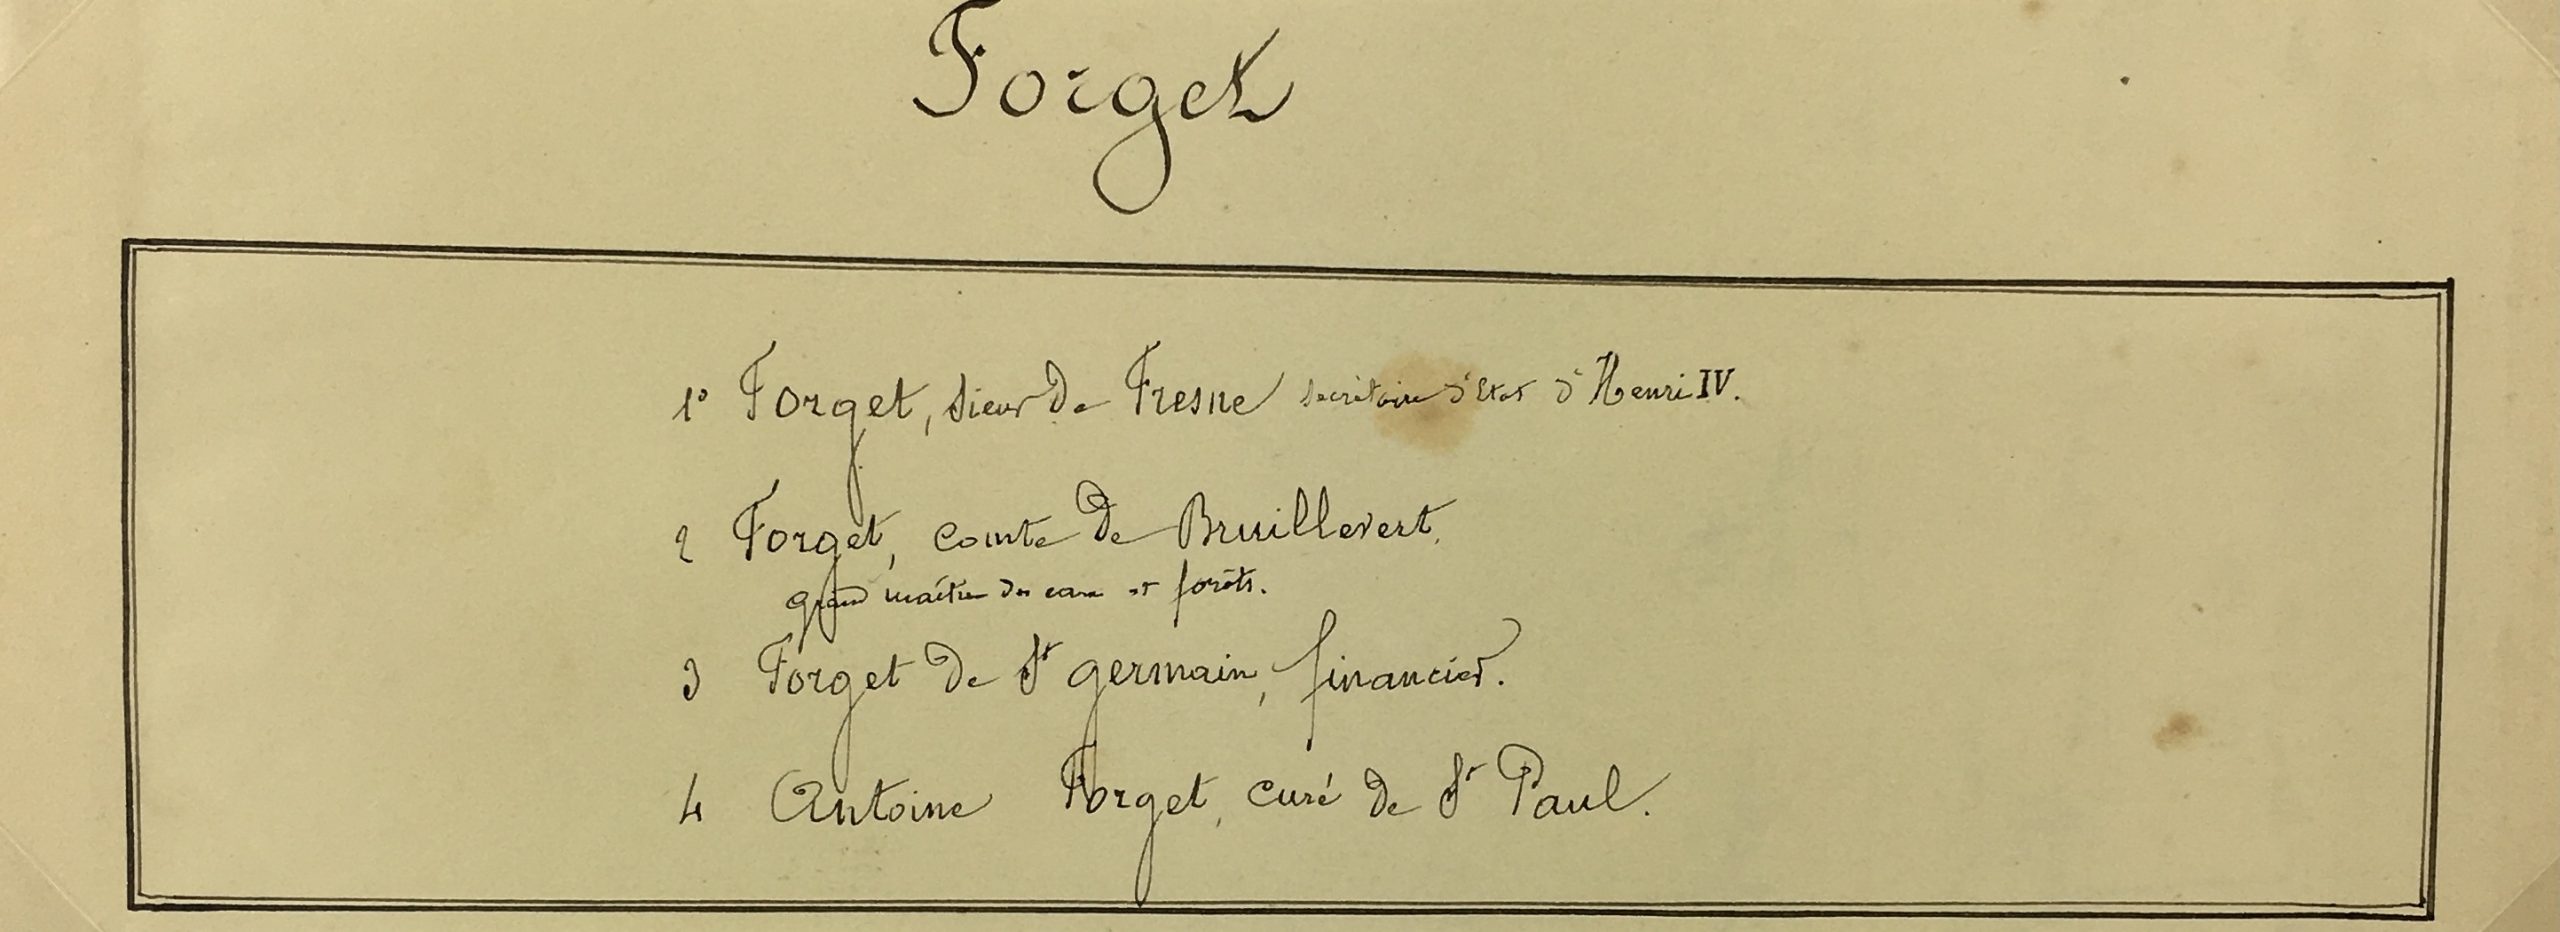 Forget
1° Forget, sieur de Fresne secrétaire d'Etat d'Henri IV.
2 Forget, comte de Bruillevert,
grand maître des eaux et forêts.
3 Forget de St germain, financier.
4 Antoine Forget, curé de St Paul.